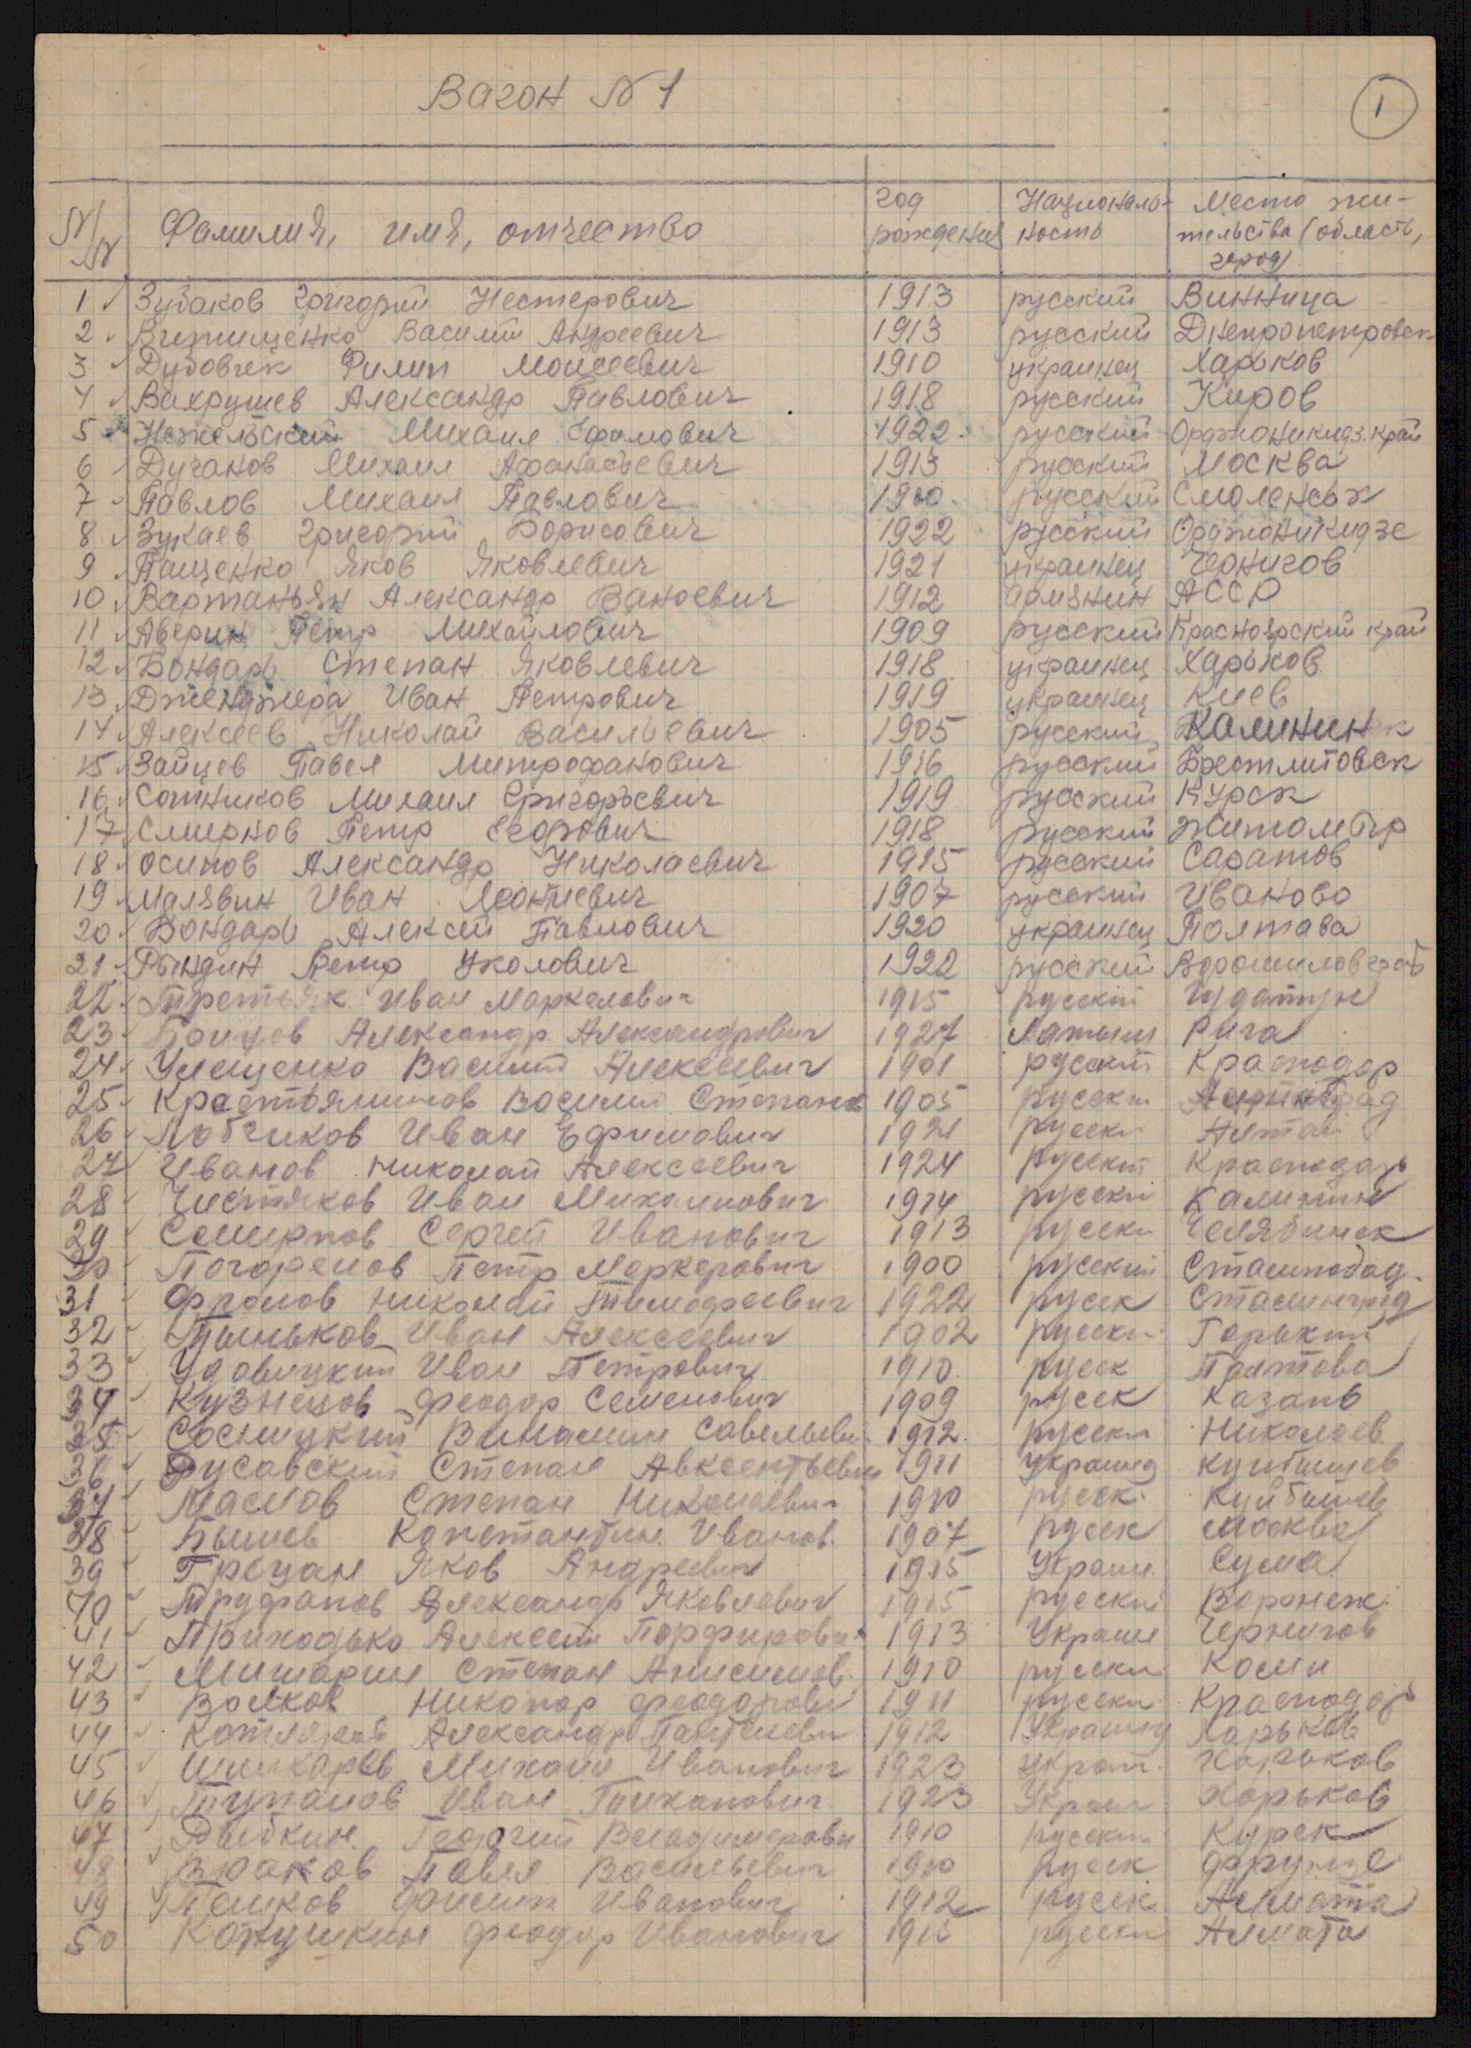 Вагон № 1
1
№/№ Фамилия, имя, отчество год рождения Националь-ность Место жи-тельства (область, город)
1 Зубаков Григорий Нестерович 1913 русский Винница
2 Василий Андреевич 1913 русский Днепропетровск
3 Дубовчек Филип Моисеевич 1910 украинец Харьков
4 Вахрушев Александр Павлович 1918 русский Киров
5 Михаил Ефимович 1922 русский Орджоникидз. край
6 Дуганов Михаил Афанасьевич 1913 русский Москва
7 Павлов Михаил Павлович русский Смоленськ
8 Зукаев Григорий Борисович 1922 русский Орджоникидзе
9 Пащенко Яков Яковлевич 1921 украинец Чернигов
10 Вартаньян Александр Ваноевич 1912 армянин АССР
11 Аверин Петр Михайлович 1909 русский Красноярский край
12 Бондарь Степан Яковлевич 1918 украинец Харьков
13 Дженджера Иван Петрович 1919 украинец Киев
14 Алексеев Николай Васильевич 1905 русский Калинин
15 Зайцев Павел Митрофанович 1916 русский Брестлитовск
16 Сотников Михаил Григорьевич 1919 русский Курск
17 Смирнов Петр Егорович 1918 русский Житомир
18 Осипов Александр Николаевич 1915 русский Саратов
19 Малявин Иван Леонтиевич 1907 русский Иваново
20 Бондарь Алексей Павлович 1920 украинец Полтава
21 Рындин Петр Уколович 1922 русский Ворошиловград
22 Третьяк Иван Маркелович 1915 русский
23 Александр Александрович 1927 Латыш Рига
24 Улещенко Василий Алексеевич 1901 русский Краснодар
25 Крестьянинов Василий Степано 1905 русски
26 Лобчиков Иван Ефимович 1921 русски Алтай
27 Иванов Николай Алексеевич 1924 русский Краснодар
28 Чистяков Иван Михаилович 1914 русски Калинин
29 Семирнов Сергей Иванович 1913 русски Челябинск
30 Погорелов Петр Маркерович 1900 русский Сталинобад.
31 Фролов Николай Тимофеевич 1922 русск Сталинград
32 Иван Алексеевич 1902 русски Горький
33 Удовицкий Иван Петрович 1910 русск Полтова
34 Кузнецов Феодор Семенович 1909 русск Казань
35 Сосницкий Винамин Савельеви 1912. русски Николаев
36 Русавский Степан Авксентьевич 1911 Украинц Куйбишев
37 Маслов Степан Николаевич 1910 русск. Куйбышев
38 Бышев Константин Иванов. 1907 русск Москва
39 Грецан Яков Андреевич 1915 Украин. Сума
40 Труфанов Александр Яковлевич 1915 русский Воронеж
41 Приходько Алексей Порфирови 1913 Украин Чернигов
42 Мишарин Степан Анисимов. 1910 русски Коми
43 Волков Никонор Феодорови 1911 русски Краснодар
44 Котляров Александр Пантелеви 1912 Украинц Харьков
45 Шликарев Михаил Иванович 1923 украи. Харьков
46 Иван Тиханович 1923 Украин Харьков
47 Рыбкин Георгий Владимерови 1910 русский Курск
48 Павел Васильевич 1910 русск Фрунзе
49 Иванович 1912 русск Алмата
50 Кокушкин Феодор Иванович 1915 русски Алмата